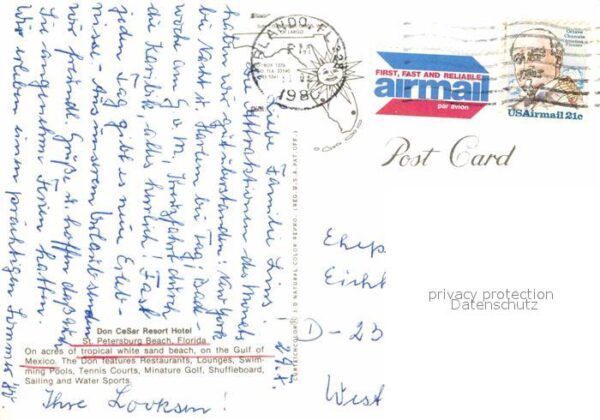 ORLANDO, FL 328
PM
1980
FIRST, FAST AND RELIABLE
airmail
par avion
Octave
Chanute
Aviation
Pioneer
USAirmail 21c
Post Card
29.7.
Liebe Familie Lins!
Attraktionen des Tunnels
haben wir gut überstanden! New York
bei Nacht u. Harlem bei Tag! Bade-
woche am G. o. M., Kreuzfahrt durch
die Karibik, alles herrlich! Fast
jeden Tag gibt es neue Erleb-
nisse. Aus unserem Urlaub senden
wir freundl. Grüße u. hoffen daß auch
Sie angenehme Ferien hatten.
Wir erleben einen prächtigen Sommer
Ihre
Don CeSar Resort Hotel
St. Petersburg Beach, Florida
On acres of tropical white sand beach, on the Gulf of
Mexico. The Don features Restaurants, Lounges, Swim-
ming Pools, Tennis Courts, Minature Golf, Shuffleboard,
Sailing and Water Sports.
Ehep
Eich
D-23
West
privacy protection
Datenschutz